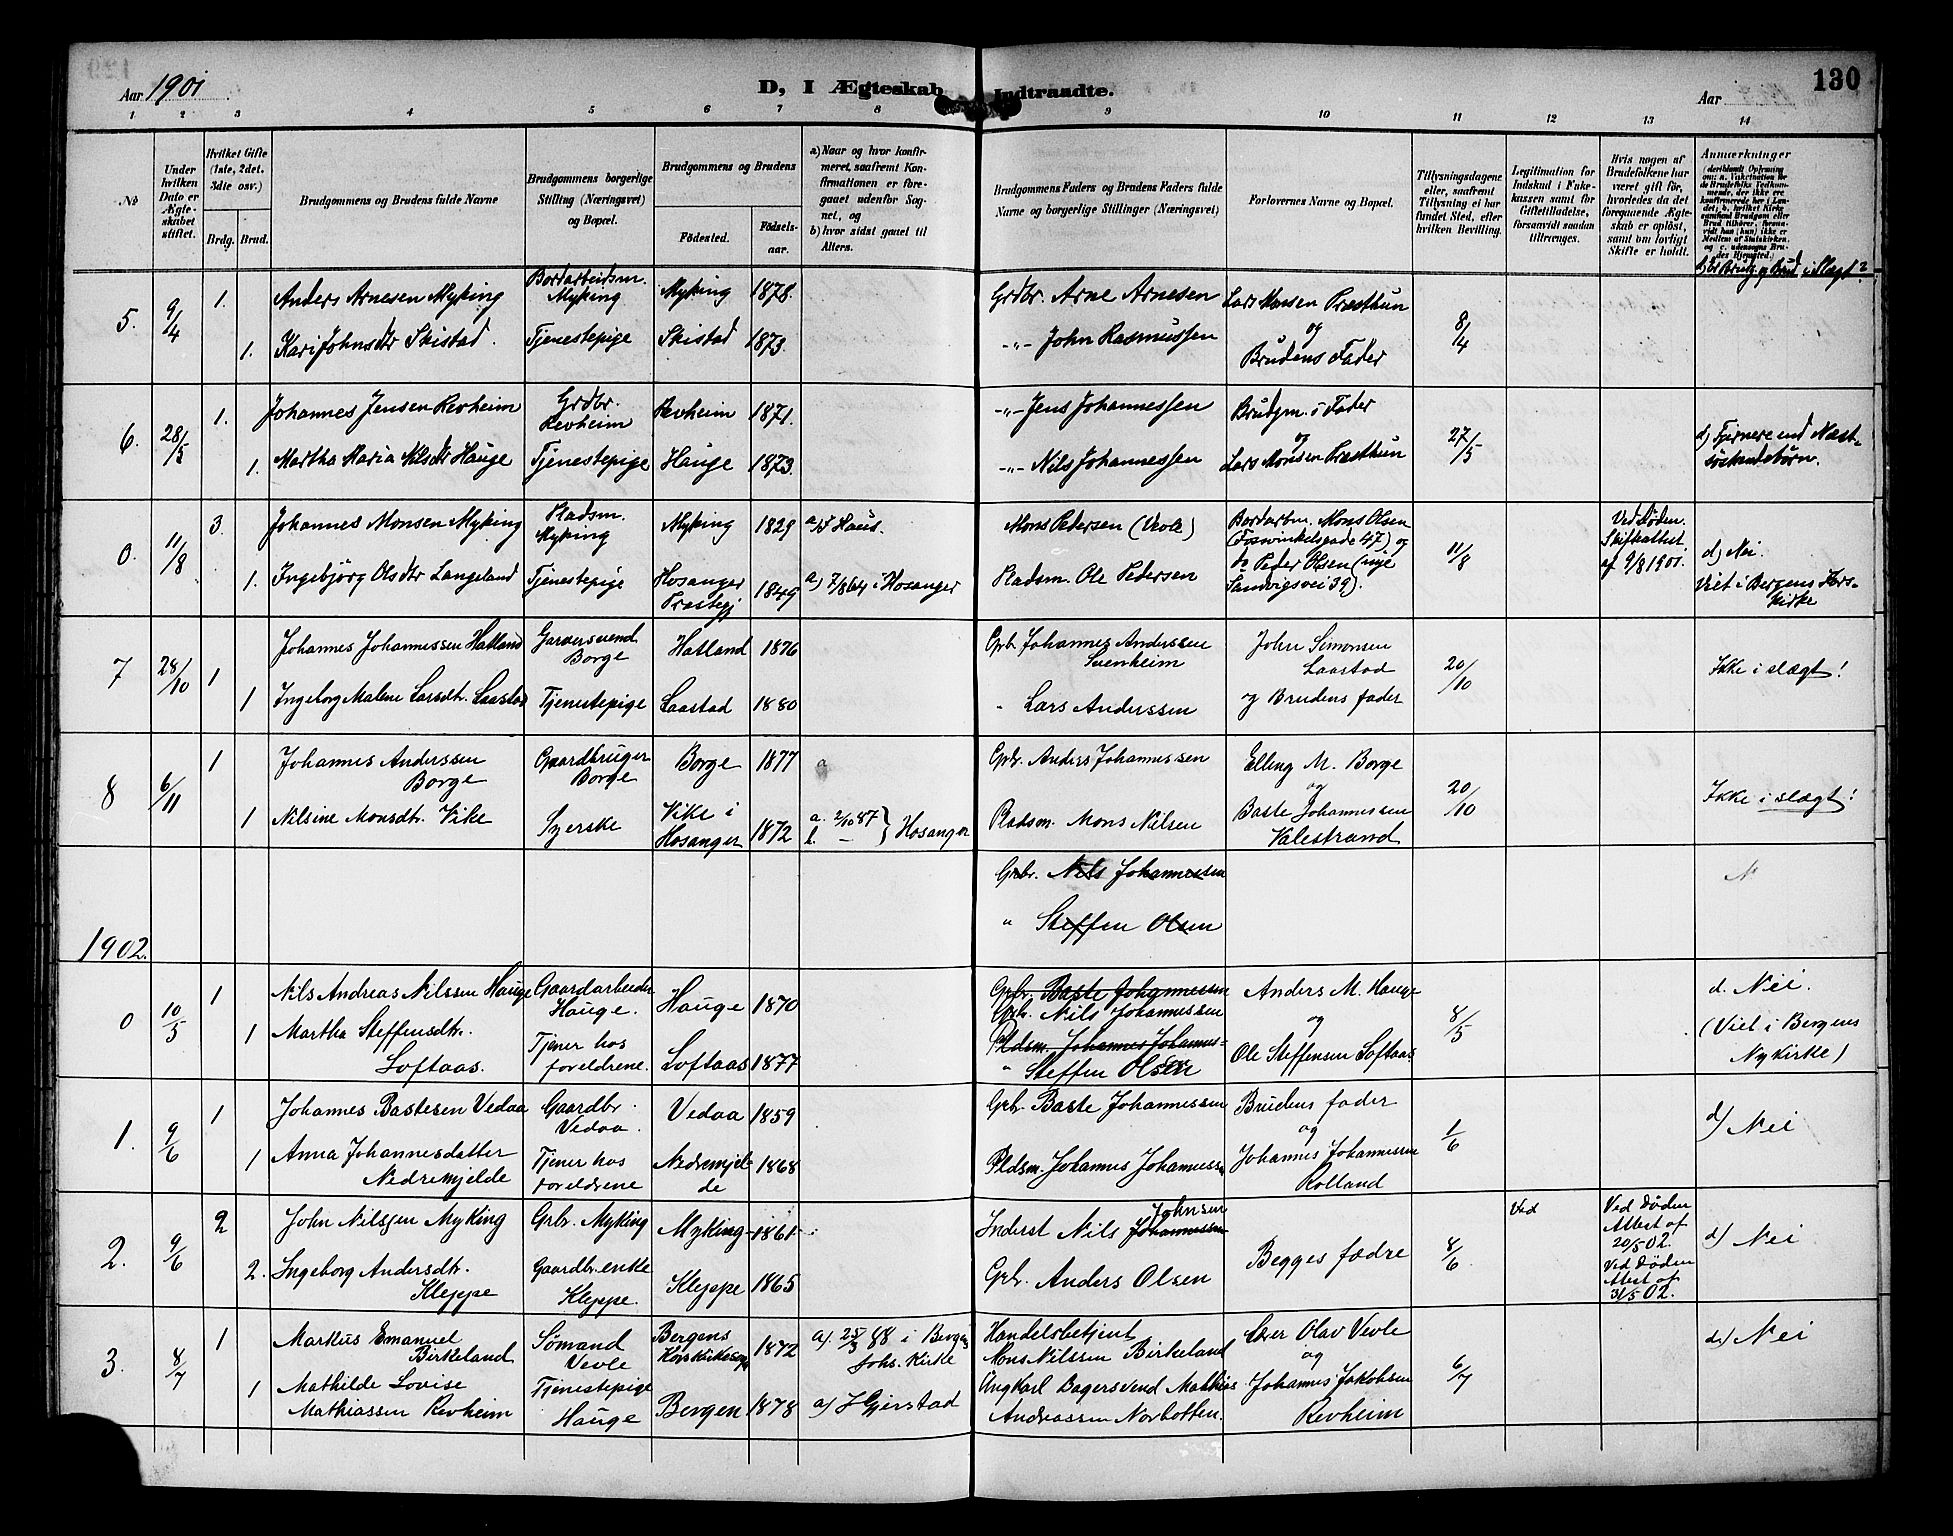 Aar 1901
D, I Ægteskab Indtraadte.
Aar
130
1 2 3 4 5 6 7 8 9 10 11 12 13 14
No
Under hvilken Dato er Ægteskabet stiftet.
Hvilket Gifte (1ste, 2det. 3dte osv.)
Brdg. Brud.
Brudgommens og Brudens fulde Navne
Brudgommens borgerlige Stilling (Næringsvei) og Bopæl.
Brudgommens og Brudens
Fødested. Fødselsaar.
a) Naar og hvor konfirmeret, saafremt Konfirmationen er foregaaet udenfor Sognet, og
b) hvor sidst gaaet til Alters.
Brudgommens Faders og Brudens Faders fulde Navne og borgerlige Stillinger (Næringsvei)
Forlovernes Navne og Bopæl.
Tillysningsdagene eller, saafremt Tillysning ei har fundet Sted, efter hvilken Bevilling.
Legitimation for Indskud i Enkekassen samt for Giftetilladelse, forsaavidt saadan tiltrænges.
Hvis nogen af Brudefolkene har været gift før, hvorledes da det foregaaende Ægteskab er opløst, samt om lovligt Skifte er holdt.
Anmærkninger
d) Er Brudg. og Brud i Slægt?
5. 9/4 1. Anders Arnesen Myking Bordarbeidsm. Myking Myking 1878. Grdbr. Arne Arnesen Lars Monsen Præsthun og 8/4
1. Kari Johnsdtr Skistad. Tjenestepige Skistad 1873. -"- John Rasmussen Brudens Fader
6. 28/5 1. Johannes Jensen Revheim Grdbr. Revheim Revheim 1871. -"- Jens Johannessen Brudgm. s Fader og 27/5 d) Fjernere end Næst-
1. Martha Maria Nilsdtr Hauge Tjenestepige Hauge 1873. -"- Nils Johannessen Lars Monsen Præsthun søskendebørn.
0. 11/8 3. Johannes Monsen Myking Pladsm. Myking Myking 1829 a) Haus. Mons Pedersen (Veole) Bordarbm. Mons Olsen (Foswinkelsgade 47) og 11/8 Ved Døden. Skifteattest af 9/8 1901. d) Nei.
1. Ingebjørg Olsdtr Langeland Tjenestepige Hosanger Præstegj 1849 a) 7/8 64 i Hosanger Pladsm. Ole Pedersen do Peder Olsen (nye Sandvigsvei 39). Viet i Bergens Korskirke
7 28/10 1 Johannes Johannessen Hatland Garversvend. Borge Hatland 1876 Grb. Johannes Anderssen Svenheim John Simonsen Laastad 20/10 Ikke i slægt!
1 Ingeborg Malene Larsdtr. Laastad Tjenestepige Laastad 1880 " Lars Anderssen og Brudens fader
8 6/11 1 Johannes Anderssen Borge Gaardbruger Borge Borge 1877 a Grbr. Anders Johannessen Elling M. Borge og 20/10 Ikke i slægt!
1 Nilsine Monsdtr. Vike Syerske Vike i Hosanger 1872 a. 2/10 87 b. – } Hosanger Pladsm. Mons Nilsen Baste Johannessen Valestrand
Grbr. Nils Johannessen N
" Steffen Olsen
1902.
0 10/5 1 Nils Andreas Nilssen Hauge Gaardarbeider Hauge. Hauge 1870 Grbr. Baste Johannessen Grbr. Nils Johannessen Anders M. Hauge og 8/5 d. Nei.
1 Martha Steffensdtr. Loftaas. Tjener hos foreldrene. Loftaas 1877 Pldsm. Johannes Johannessen " Steffen Olsen Ole Steffensen Loftaas (Viet i Bergens Nykirke)
1. 9/6 1 Johannes Bastesen Vedaa Gaardbr. Vedaa. Vedaa 1859 Grbr. Baste Johannessen Brudens fader og 1/6 d) Nei
1 Anna Johannesdatter Nedremjelde Tjener hos foreldrene Nedremjelde 1868 Pldsm. Johannes Johannessen Johannes Johannessen Rolland
2. 9/6 2 John Nilssen Myking Grbr. Myking Myking 1861 Inderst Nils Johannessen Johnsen Begges fædre 8/6 Ved Ved Døden Attest af 20/5 02. d) Nei
2. Ingeborg Andersdtr. Kleppe Gaardbr. enke Kleppe. Kleppe 1865 Grbr. Anders Olsen Ved Døden Attest af 31/5 02.
3. 8/7 1 Markus Emanuel Birkeland Sømand Vevle Bergens Korskirkesogn 1872 a). 25/3 88 i Bergens Johs. Kirke Handelsbetjent Mons Nilssen Birkeland Lærer Olav Vevle og 6/7 d) Nei
1 Mathilde Lovise Mathiassen Revheim Tjenestepige Hauge Bergen 1878 a) Gjerstad Ungkarl Bagersvend Mathias Andreassen Norbotten. Johannes Jakobsen Revheim